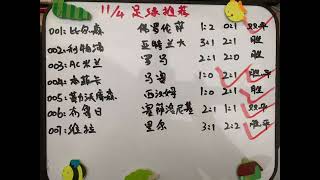 11/4 足球推荐
001:比尔森 佛罗伦萨 1:2 0:1 只平
002:利物浦 亚特兰大 3:1 2:1 胜
003:AC米兰 罗马 2:1 1:0 胜
004:本菲卡 马赛 1:0 2:1 胜平
005:勒沃库森 西汉姆 1:0 2:1 胜
006:布鲁日 塞萨洛尼基 2:1 1:1 只平
007:维拉 里尔 3:1 2:2 胜平